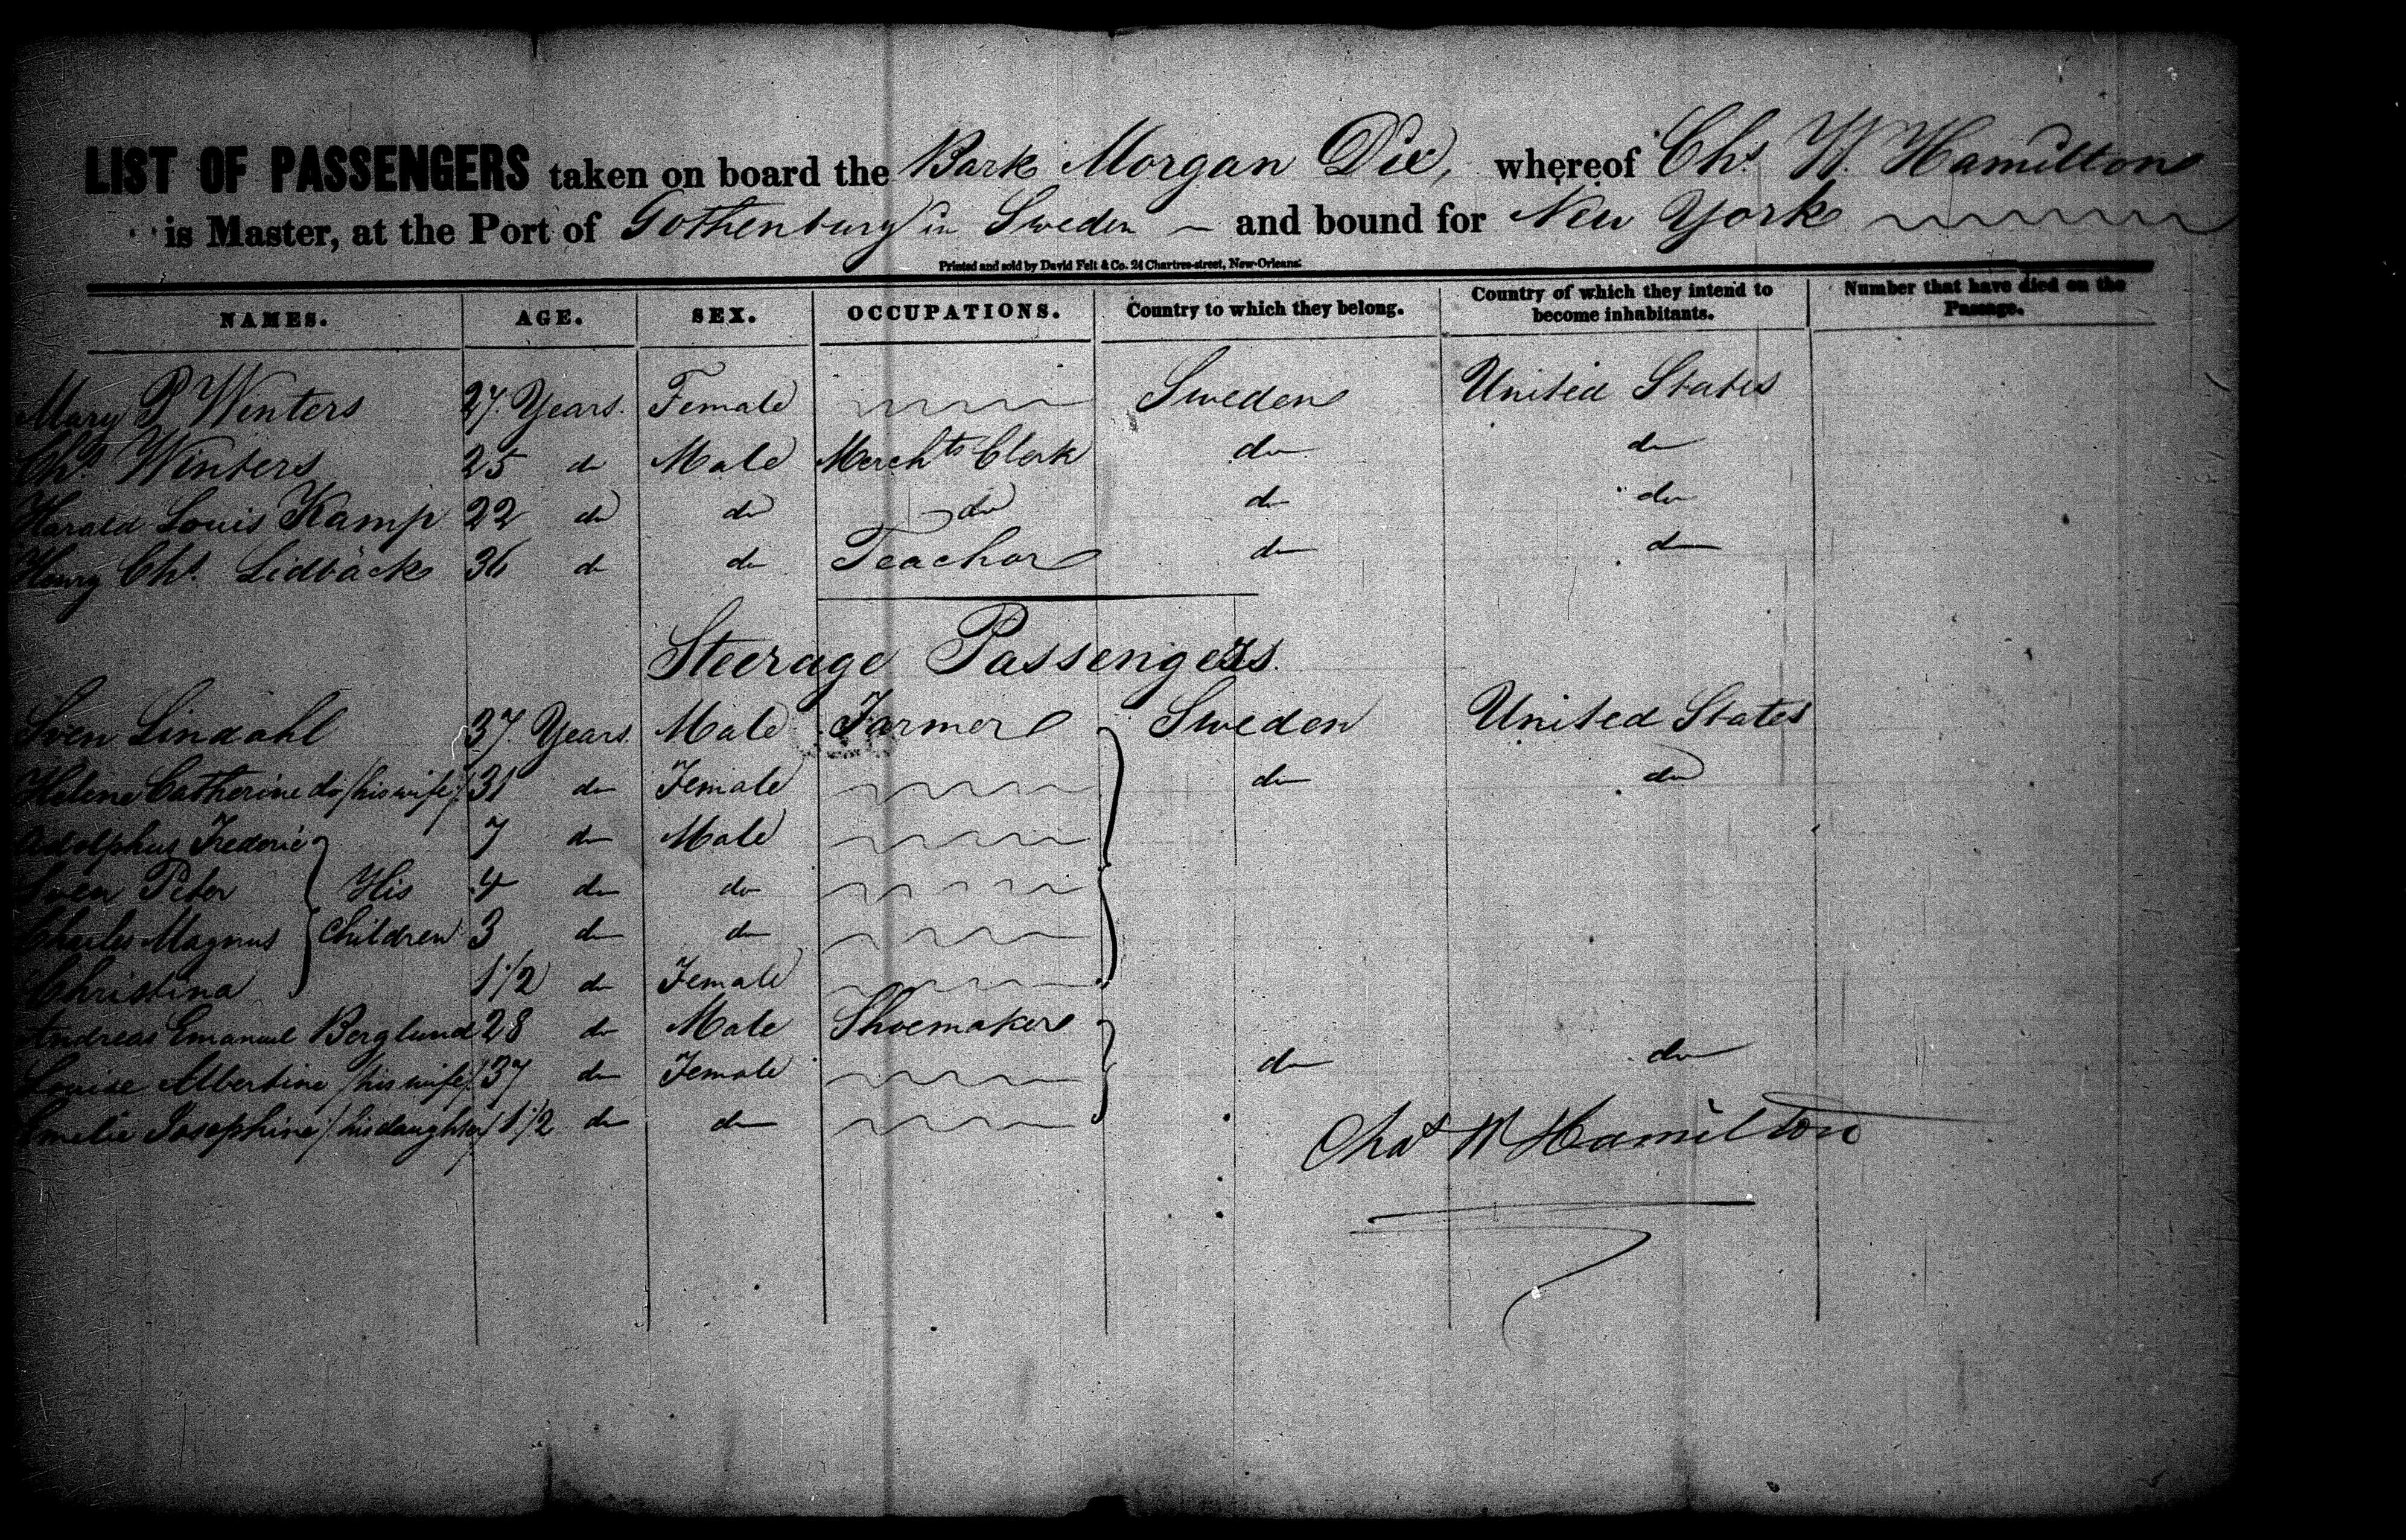 LIST OF PASSENGERS taken on board the Bark Morgan Dix, whereof Chs. W. Hamilton
is Master, at the Port of Gothenburg in Sweden - and bound for New York
Printed and sold by David Felt & Co. 24 Chartres-street, New-Orleans.
NAMES. AGE. SEX. OCCUPATIONS. Country to which they belong. Country of which they intend to become inhabitants. Number that have died on the Passage.
Mary P Winters 27. Years. Female Sweden United States
Chs. Winters 25 do Male Merchts Clerk do do
Harald Louis Kamp 22 do do do do do
Henry Chs. Lidbäck 36 do do Teacher do do
Steerage Passengers.
Sven Lindahl 37. Years. Male Farmer Sweden United States
Helene Catherine do /his wife/ 31 do Female do do
Adolphus Frederic 7 do Male
Sven Peter His 4 do do
Charles Magnus Children 3 do do
Christina 1 1/2 do Female
Andreas Emanuel Berglund 28 do Male Shoemaker
Louise Albertine /his wife/ 37 do Female do do
Emelie Josephine /his daughter/ 1 1/2 do do
Chas W Hamilton